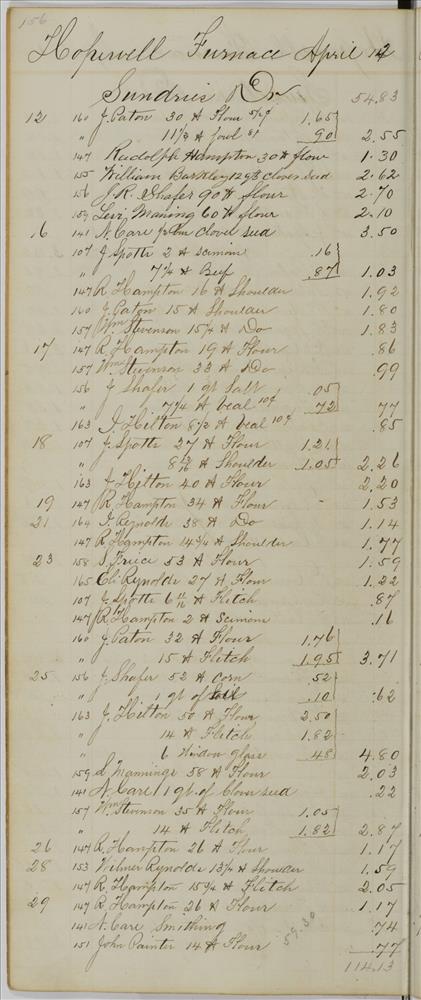 156
Hopewell Furnace April 12
Sundries Dr 54.83
12 160 J. Paton 30 # Flour 5½¢ 1.65
" 11½ # fowl 8¢ 90 2.55
147 Rudolph Hampton 30 # flour 1.30
155 William Barkley 12 clover seed 2.62
156 J. R. Shafer 90 # flour 2.70
159 Levi Maning 60 # flour 2.10
16 141 N. Care clover seed 3.50
107 J Spotts 2 # .16
" 7¼ # Beef .87 1.03
147 R Hampton 16 # Shoulder 1.92
160 J. Paton 15 # Shoulder 1.80
157 Wm Stevenson 15¼ # Do 1.83
17 147 R. Hampton 19 # Flour .86
157 Wm Stevenson 33 # Do .99
156 J Shafer 1 qt Salt .05
" 7¼ # Veal 10¢ .72 77
163 J. Hilton 8½ # Veal 10¢ .85
18 107 J. Spotts 27 # Flour 1.21
" 8 # Shoulder 1.05 2.26
163 J Hilton 40 # Flour 2.20
19 147 R Hampton 34 # Flour 1.53
21 164 J. Reynolds 38 # Do 1.14
147 R Hampton 14¾ # Shoulder 1.77
23 158 S. Price 53 # Flour 1.59
165 Eli Reynolds 27 # Flour 1.22
107 J Spotts 6 # Flitch .87
147 R Hampton 2 # .16
160 J. Paton 32 # Flour 1.76
15 # Flitch 1.95 3.71
25 156 J. Shafer 52 # Corn .52
" 1 qt of Salt .10 .62
163 J. Hilton 50 # Flour 2.50
" 14 # Flitch 1.82
" 6 Window glass .48 4.80
159 L Mannings 58 # Flour 2.03
141 N. Care 1 qt. of Clover seed .22
157 Wm Stevenson 35 # Flour 1.05
" 14 # Flitch 1.82 2.87
26 147 R. Hampton 26 # Flour 1.17
28 153 Wilmer Reynolds 13¼ # Shoulder 1.59
147 R. Hampton 15¾ # Flitch 2.05
29 147 R Hampton 26 # Flour 1.17
141 N. Care Smithing .74
151 John Painter 14 # Flour .77
59.30
114.13